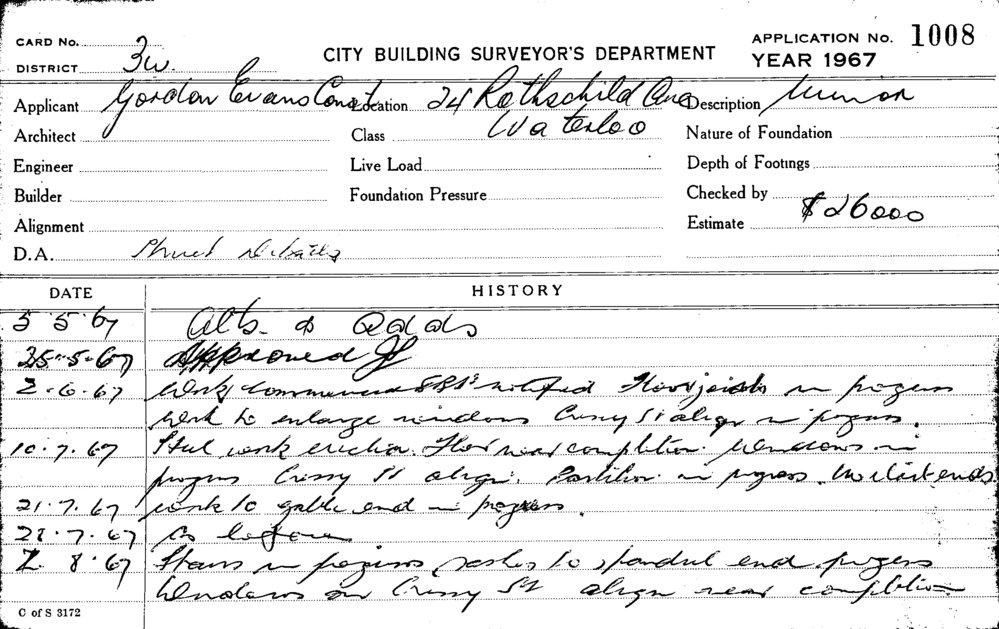 CARD No. 3w.
CITY BUILDING SURVEYOR'S DEPARTMENT
APPLICATION No. 1008
DISTRICT
YEAR 1967
Applicant Gordon Evans Const Location 24 Rothschild Ave Description Minor
Waterloo
Architect Class Nature of Foundation
Engineer Live Load Depth of Footings
Builder Foundation Pressure Checked by
Alignment Estimate $26000
D.A.
DATE HISTORY
5 5 67 Alts. & Adds
25-5-67 Approved
2.6.67 Work commenced notified Floor joists in progress
work to enlarge windows Cressy St align in progress.
10.7.67 Steel work erection. Floor near completion. Windows in
progress Cressy St align. Partition in progress.
21.7.67 work to gable end in progress.
28.7.67 As before
2 8 67 Stairs in progress, sashes to end progress
Windows on Cressy St align near completion
C of S 3172